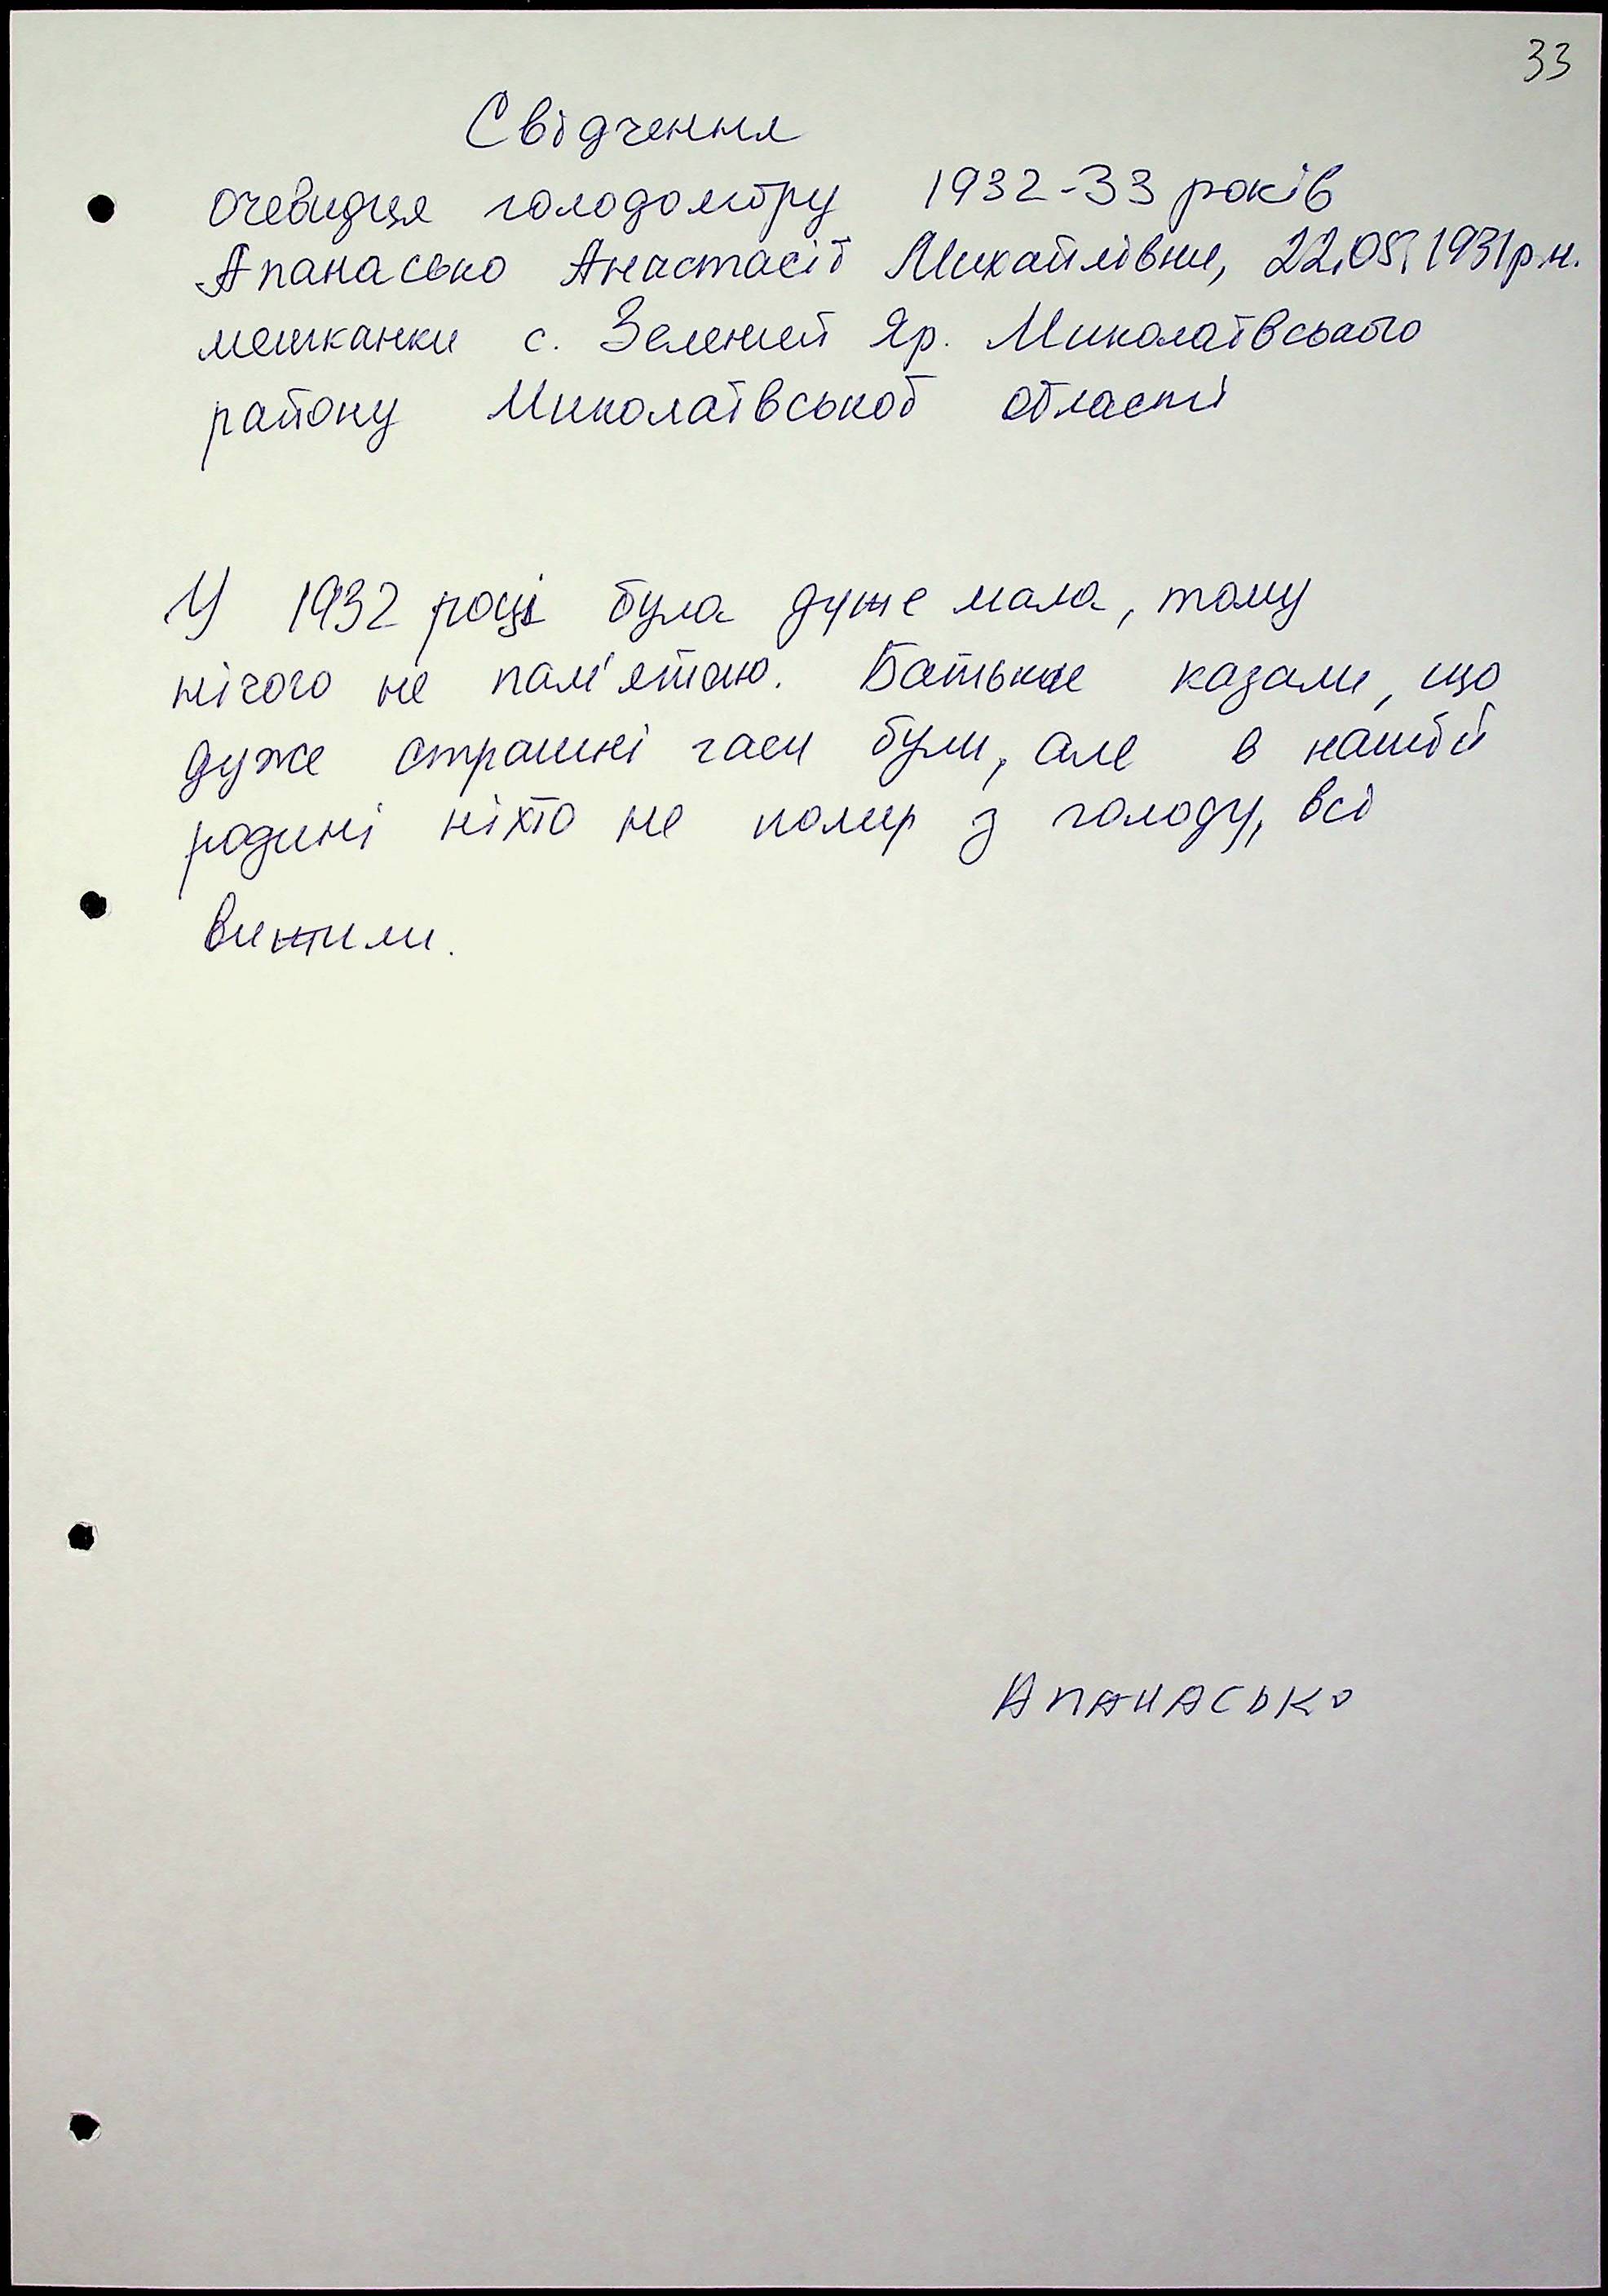 33
Свідчення
очевидця голодомору 1932-33 років
Апанасько Анастасії Михайлівни, 22.05.1931 р.н.
мешканки с. Зелений Яр. Миколаївського
району Миколаївської області
У 1932 році була дуже мала, тому
нічого не пам'ятаю. Батьки казали, що
дуже страшні часи були, але в нашій
родині ніхто не помер з голоду, всі
вижили.
Апанасько